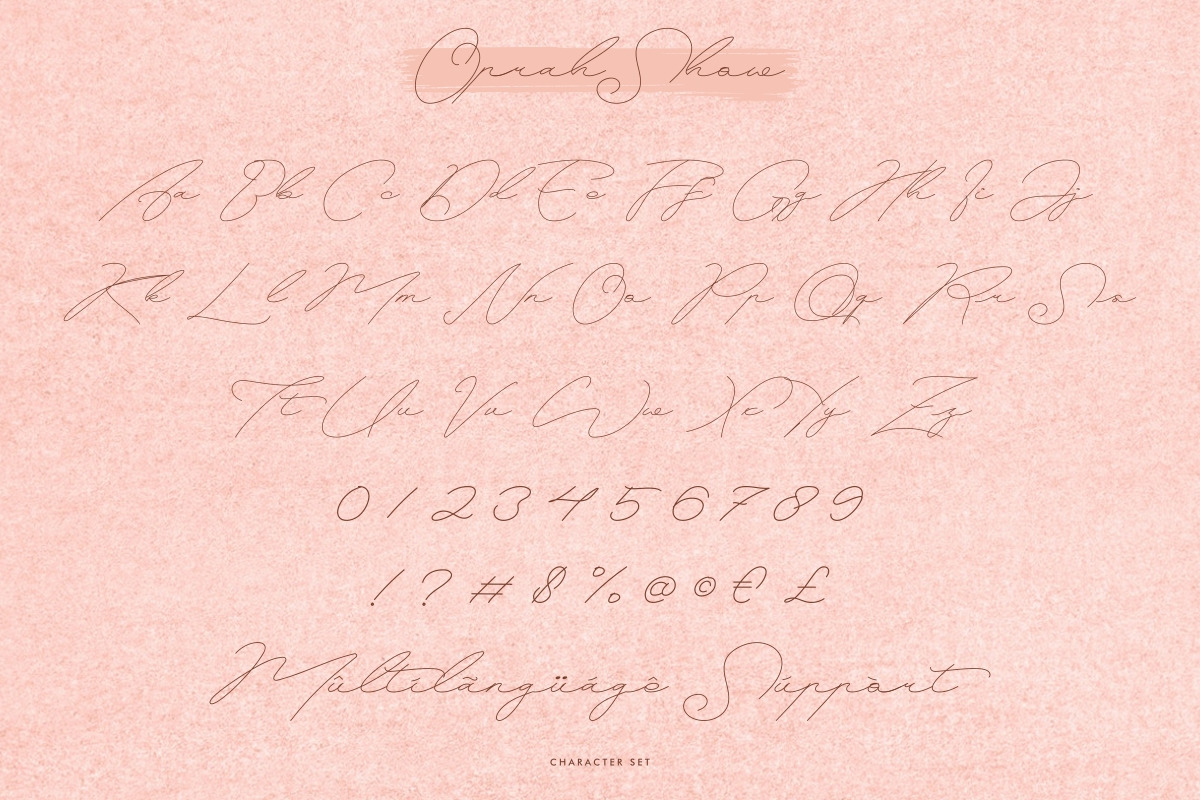 Oprah Show
Aa Bb Cc Dd Ee Ff Gg Hh Ii Jj
Kk Ll Mm Nn Oo Pp Qq Rr Ss
Tt Uu Vv Ww Xx Yy Zz
0 1 2 3 4 5 6 7 8 9
! ? # $ % @ © € £
Mûltílãngüágê Súppòrt
CHARACTER SET